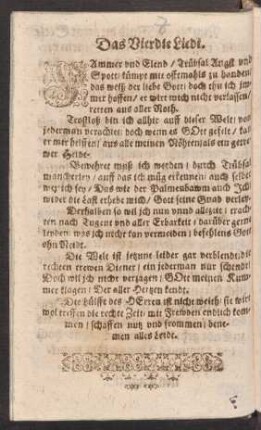 Das Vierdte Liedt.
JAmmer und Elend / Trübsal Angst und
Spott kömpt mir offtmahls zu handen /
das weiß der liebe Gott: doch thu ich jm̃-
mer hoffen / er wirt mich nicht verlassen /
retten aus aller Noth.
Trostloß bin ich allhie auff dieser Welt / von
jederman verachtet doch wenn es GOtt gefelt / kan
er mir helffen / aus alle meinen Nöhten als ein getre-
wer Heldt.
Bewehret muß ich werden / durch Trübsal
mancherley / auff das ich müg erkennen / auch selbst
wer ich sey / Das wie der Palmenbawm auch Ich /
wider die Last erhebe mich / Gott seine Gnad verley.
Derhalben so wil ich nun unnd allezeit / trach-
ten nach Tugent und aller Erbarkeit / darüber gerne
leyden / was ich nicht kan vermeiden / befehlens Gott
ohn Neidt.
Die Welt ist jetzund leider gar verblendt / die
rechten trewen Diener / ein jederman nur schendt /
Doch wil ich nicht verzagen / GOtt meinen Kum-
mer klagen / Der aller Hertzen kendt.
Die hülffe des HErren ist nicht weith / sie wirt
wol treffen die rechte Zeit / mit Frewden endlich kom-
men / schaffen nutz und frommen / bene-
men alles Leidt.